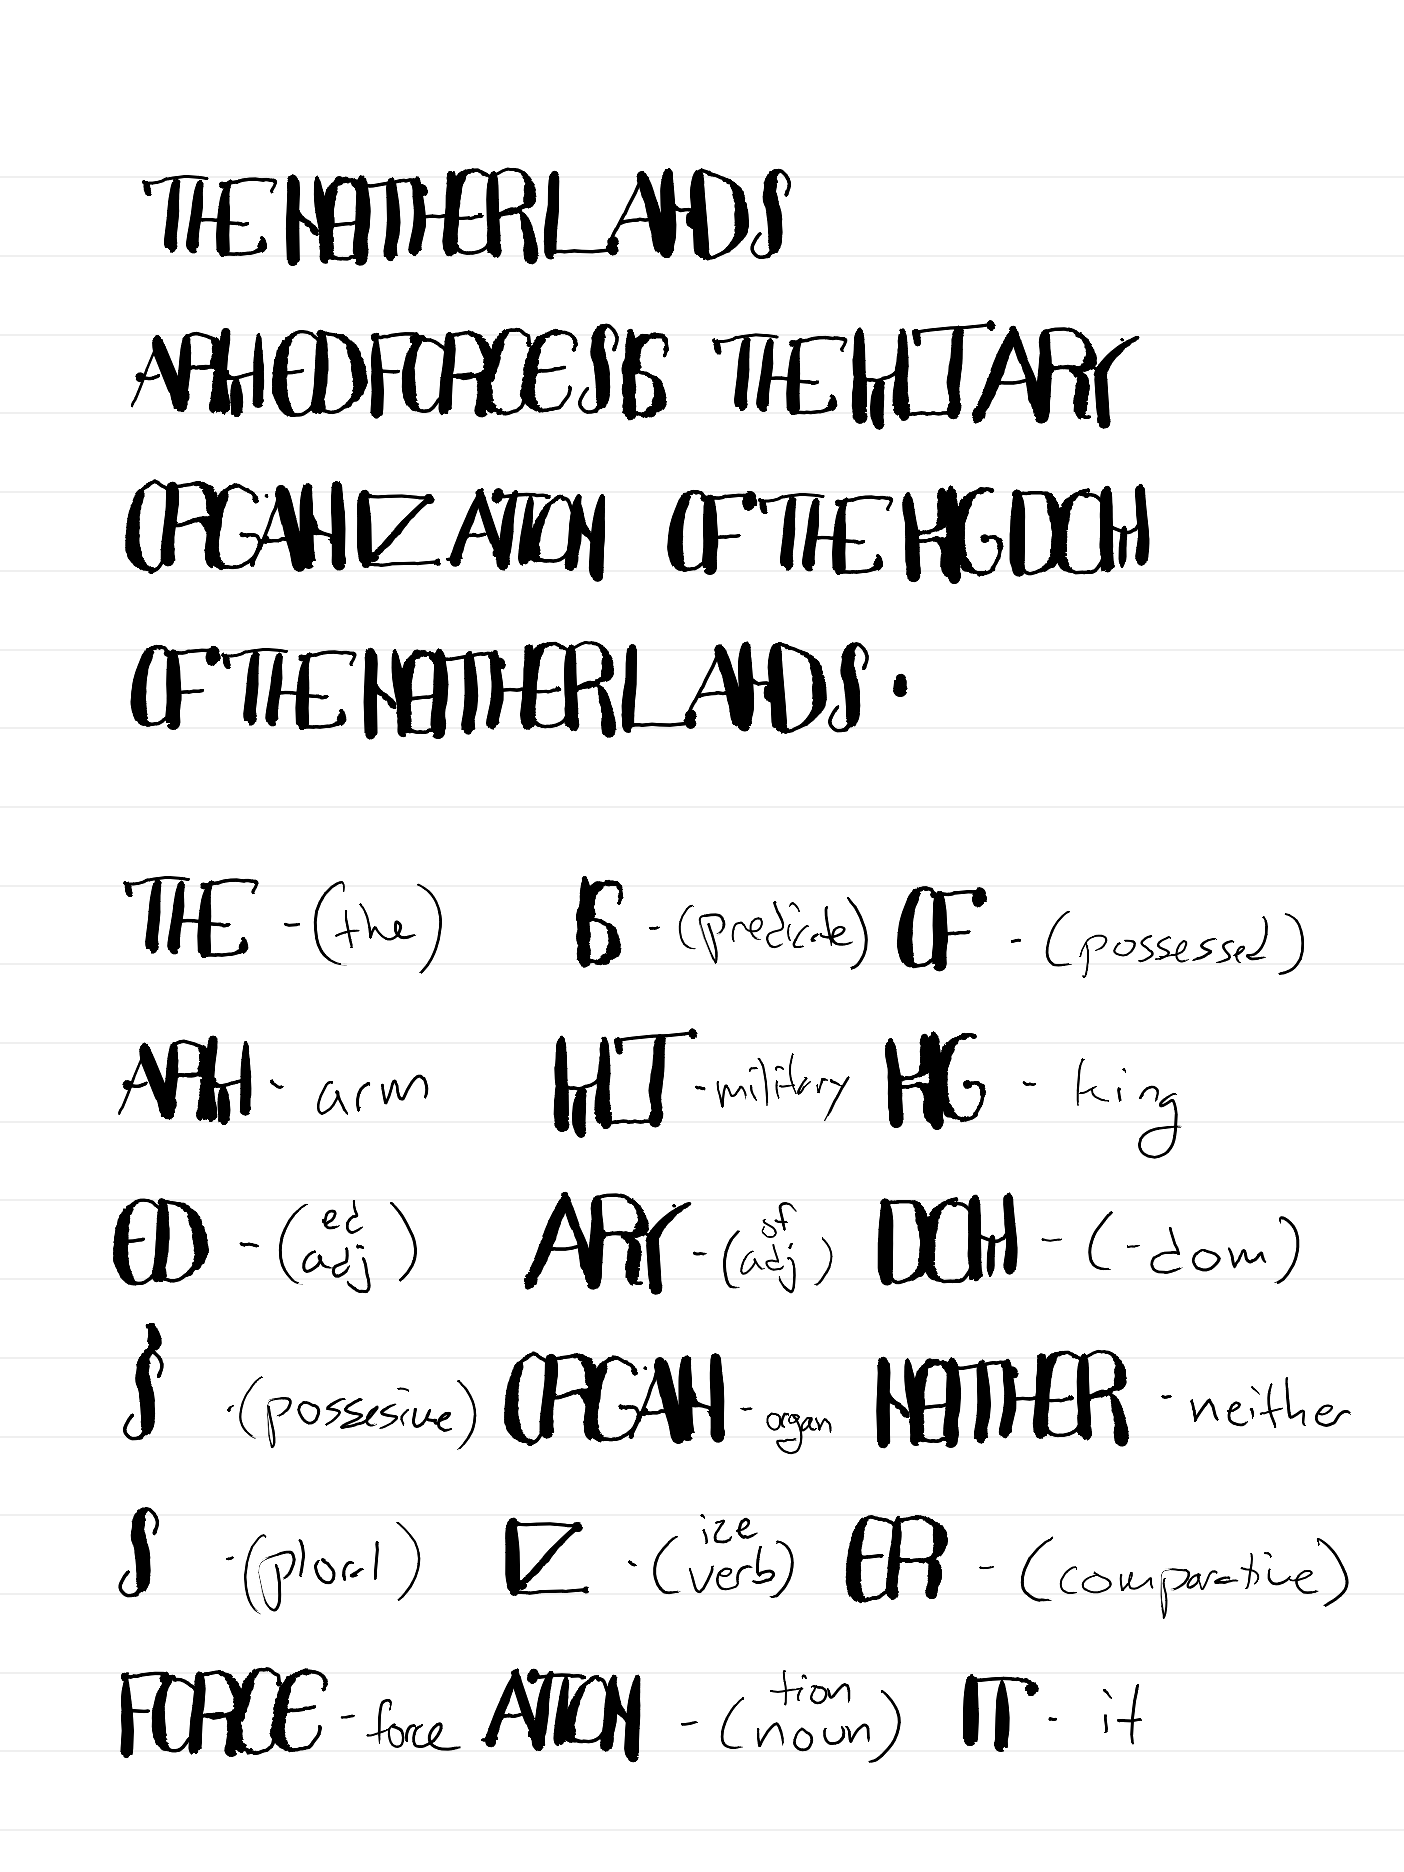 THE NEITHERLANDS
ARMED FORCES IS THE MILITARY
ORGANIZATION OF THE KINGDOM
OF THE NEITHERLANDS.
THE - (the) IS - (predicate) OF - (possessed)
ARM - arm MILIT - military KING - king
ED - (ed adj) ARY - (of adj) DOM - (-dom)
'S - (possesive) ORGAN - organ NEITHER - neither
S - (ploral) IZ - (ize verb) ER - (comparative)
FORCE - force ATION - (tion noun) IT - it